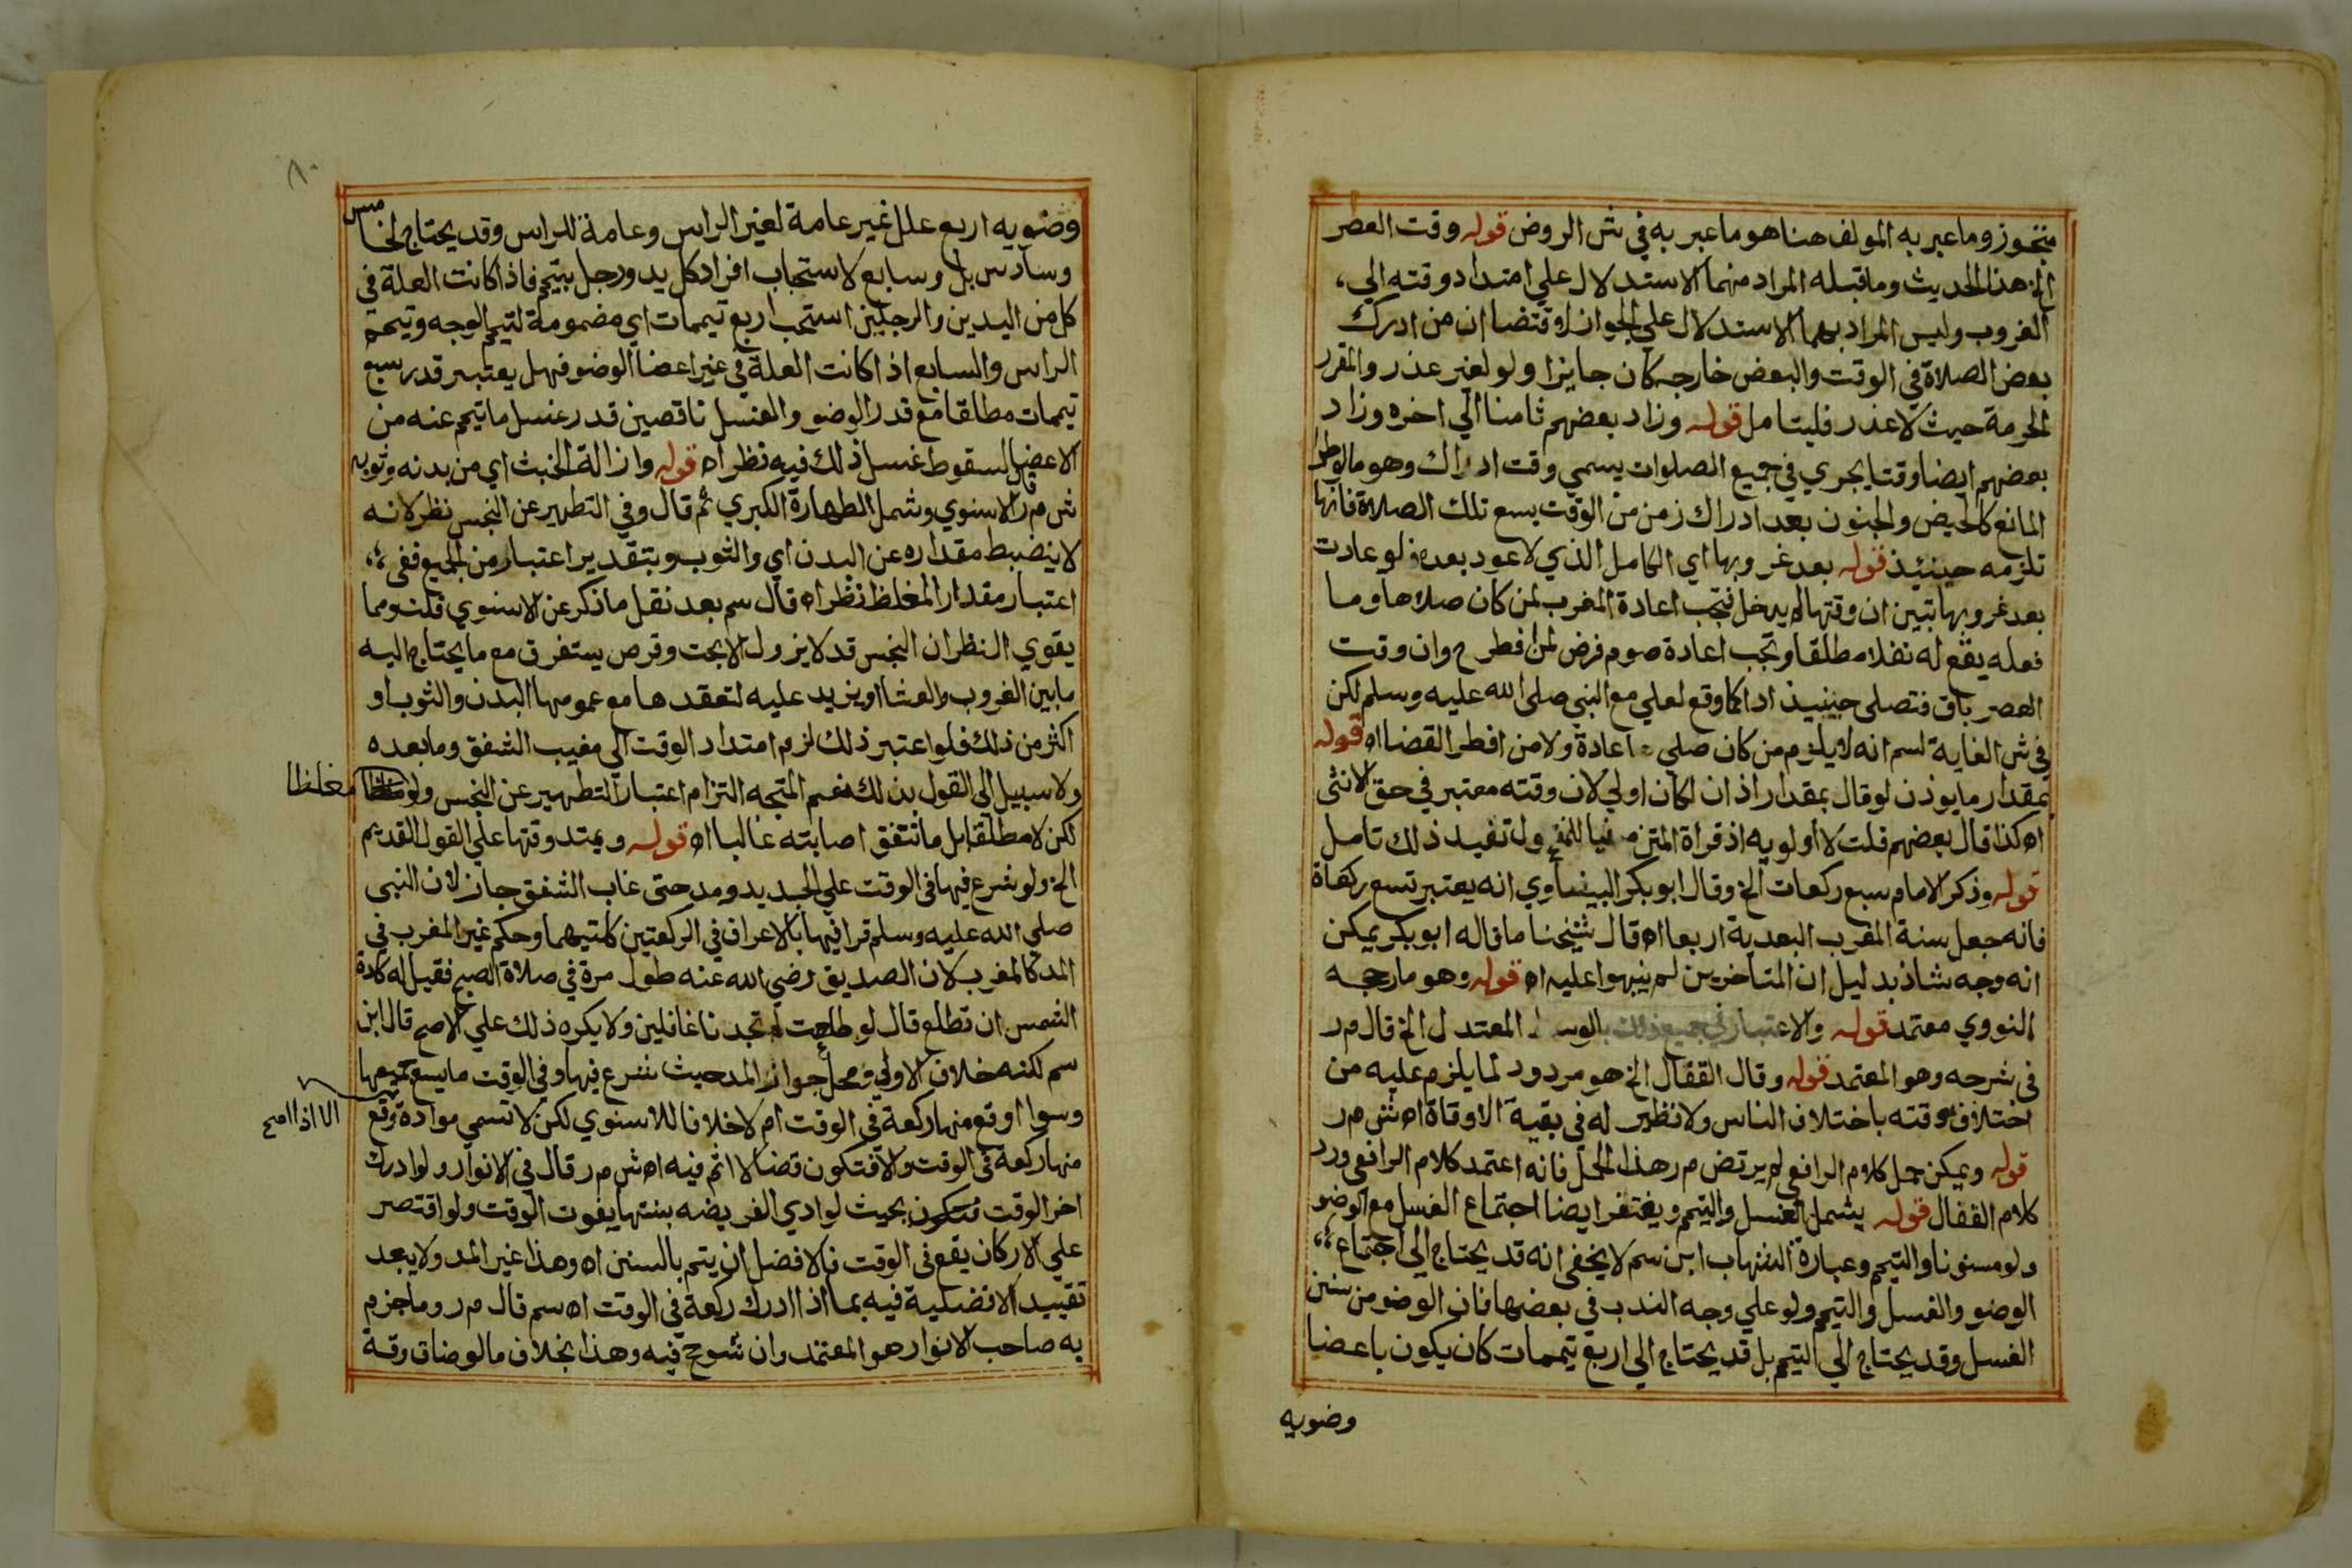 متجوز وما عبر به المولف هنا هو ما عبر به في ش الروض قوله وقت العصر
الخ هذا الحديث وما قبله المراد منهما الاستدلال علي امتداد وقته الي
الغروب وليس المراد بهما الاستدلال علي الجواز لاقتضا ان من ادرك
بعض الصلاة في الوقت والبعض خارجه كان جايزا ولو لغير عذر والمقرر
الحرمة حيث لا عذر فليتامل قوله وزاد بعضهم ثامنا الي اخره وزاد
بعضهم ايضا وقتا يجري في جميع الصلوات يسمي وقت ادراك وهو ما لو طرا
المانع كالحيض والجنون بعد ادراك زمن من الوقت يسع تلك الصلاة فانها
تلزمه حينئذ قوله بعد غروبها اي الكامل الذي لا عود بعده فلو عادت
بعد غروبها تبين ان وقتها لم يدخل فتجب اعادة المغرب لمن كان صلاها وما
فعله يقع له نفلا مطلقا وتجب اعادة صوم فرض لمن افطر ح وان وقت
العصر باق فتصلي حينيذ ادا كما وقع لعلي مع النبي صلى الله عليه وسلم لكن
في ش الغاية لسم انه لا يلزم من كان صلي اعادة ولا من افطر القضا اه قوله
بمقدار ما يوذن لو قال بمقدار اذان لكان اولي لان وقته معتبر في حق الانثى
اه كذا قال بعضهم قلت لا اولويه اذ قراة المتن ول تفيد ذلك تامل
قوله وذكر الامام سبع ركعات الخ وقال ابو بكر البيضاوي انه يعتبر تسع ركعاة
فانه جعل سنة المغرب البعدية اربعا اه قال شيخنا ما قاله ابو بكر يمكن
انه وجه شاذ بدليل ان المتاخرين لم ينبهوا عليه اه قوله وهو ما رجحه
النووي معتمد قوله والاعتبار في جميع ذلك بالوسط المعتدل الخ قال م ر
في شرحه وهو المعتمد قوله وقال القفال الخ هو مردود لما يلزم عليه من
اختلاف وقته باختلاف الناس ولا نظير له في بقية الاوقاة اه ش م ر
قوله ويمكن حمل كلام الرافعي لم يرتض م ر هذا الحمل فانه اعتمد كلام الرافعي ورد
كلام القفال قوله يشمل الغسل والتيمم ويغتفر ايضا اجتماع الغسل مع الوضو
ولو مسنونا والتيمم وعبارة الشهاب ابن سم لا يخفى انه قد يحتاج الي اجتماع
الوضو والغسل والتيمم ولو علي وجه الندب في بعضها فان الوضو من سنن
الغسل وقد يحتاج الي التيمم بل قد يحتاج الي اربع تيممات كان يكون باعضا
وضويه
٨٠
وضويه اربع علل غير عامة لغير الراس وعامة للراس وقد يحتاج لخامس
وسادس بل وسابع لاستحباب افراد كل يد ورجل بتيمم فاذا كانت العلة في
كل من اليدين والرجلين استحب اربع تيممات اي مضمومة لتيمم الوجه وتيمم
الراس والسابع اذا كانت العلة في غير اعضا الوضو فهل يعتبر قدر سبع
تيممات مطلقا مع قدر الوضو والغسل ناقصين قدر غسل ما تيمم عنه من
الاعضا لسقوط غسل ذلك فيه نظر اه قوله وازالة الخبث اي من بدنه وثوبه
ش م ر قال الاسنوي وشمل الطهارة الكبري ثم قال وفي التطهير عن النجس نظر لانه
لا ينضبط مقداره عن البدن اي والثوب وبتقدير اعتباره من الجميع ففي
اعتبار مقدار المغلظ نظر اه قال سم بعد نقل ما ذكر عن الاسنوي قلت ومما
يقوي النظر ان النجس قد لا يزول الا بحت وقرص يستغرق مع ما يحتاج اليه
ما بين الغروب والعشا او يزيد عليه لتعقدها مع عمومها البدن والثوب او
اكثر من ذلك فلو اعتبر ذلك لزم امتداد الوقت الي مغيب الشفق وما بعده
ولا سبيل الي القول بذلك نعم المتجه التزام اعتبار التطهير عن النجس ولو مغلظا
لكن لا مطلقا بل ما تتفق اصابته غالبا اه قوله ويمتد وقتها علي القول القديم
الخ ولو شرع فيها في الوقت علي الجديد ومد حتى غاب الشفق جاز لان النبي
صلي الله عليه وسلم قرا فيها بالاعراف في الركعتين كلتيهما وحكم غير المغرب في
المد كالمغرب لان الصديق رضي الله عنه طول مرة في صلاة الصبح فقيل له كادة
الشمس ان تطلع قال لو طلعت لم تجدنا غافلين ولا يكره ذلك علي الاصح قال ابن
سم لكنه خلاف الاولي ومحل جواز المد حيث شرع فيها وفي الوقت ما يسع جميعها
وسوا اوقع منها ركعة في الوقت ام لا خلافا للاسنوي لكن لا تسمي موداة الا اذا وقع
الا اذا صح
منها ركعة في الوقت والا فتكون قضا لا اثم فيه اه ش م ر قال في الانوار ولو ادرك
اخر الوقت بحيث لو ادي الفريضه بسنتها يفوت الوقت ولو اقتصر
علي الاركان يقع في الوقت فالافضل ان يتم بالسنن اه وهذا غير المد ولا يبعد
تقييد الافضلية فيه بما اذا ادرك ركعة في الوقت اه سم قال م ر وما جزم
به صاحب الانوار هو المعتمد وان نتوزع فيه وهذا بخلاف ما لو ضاق وقته